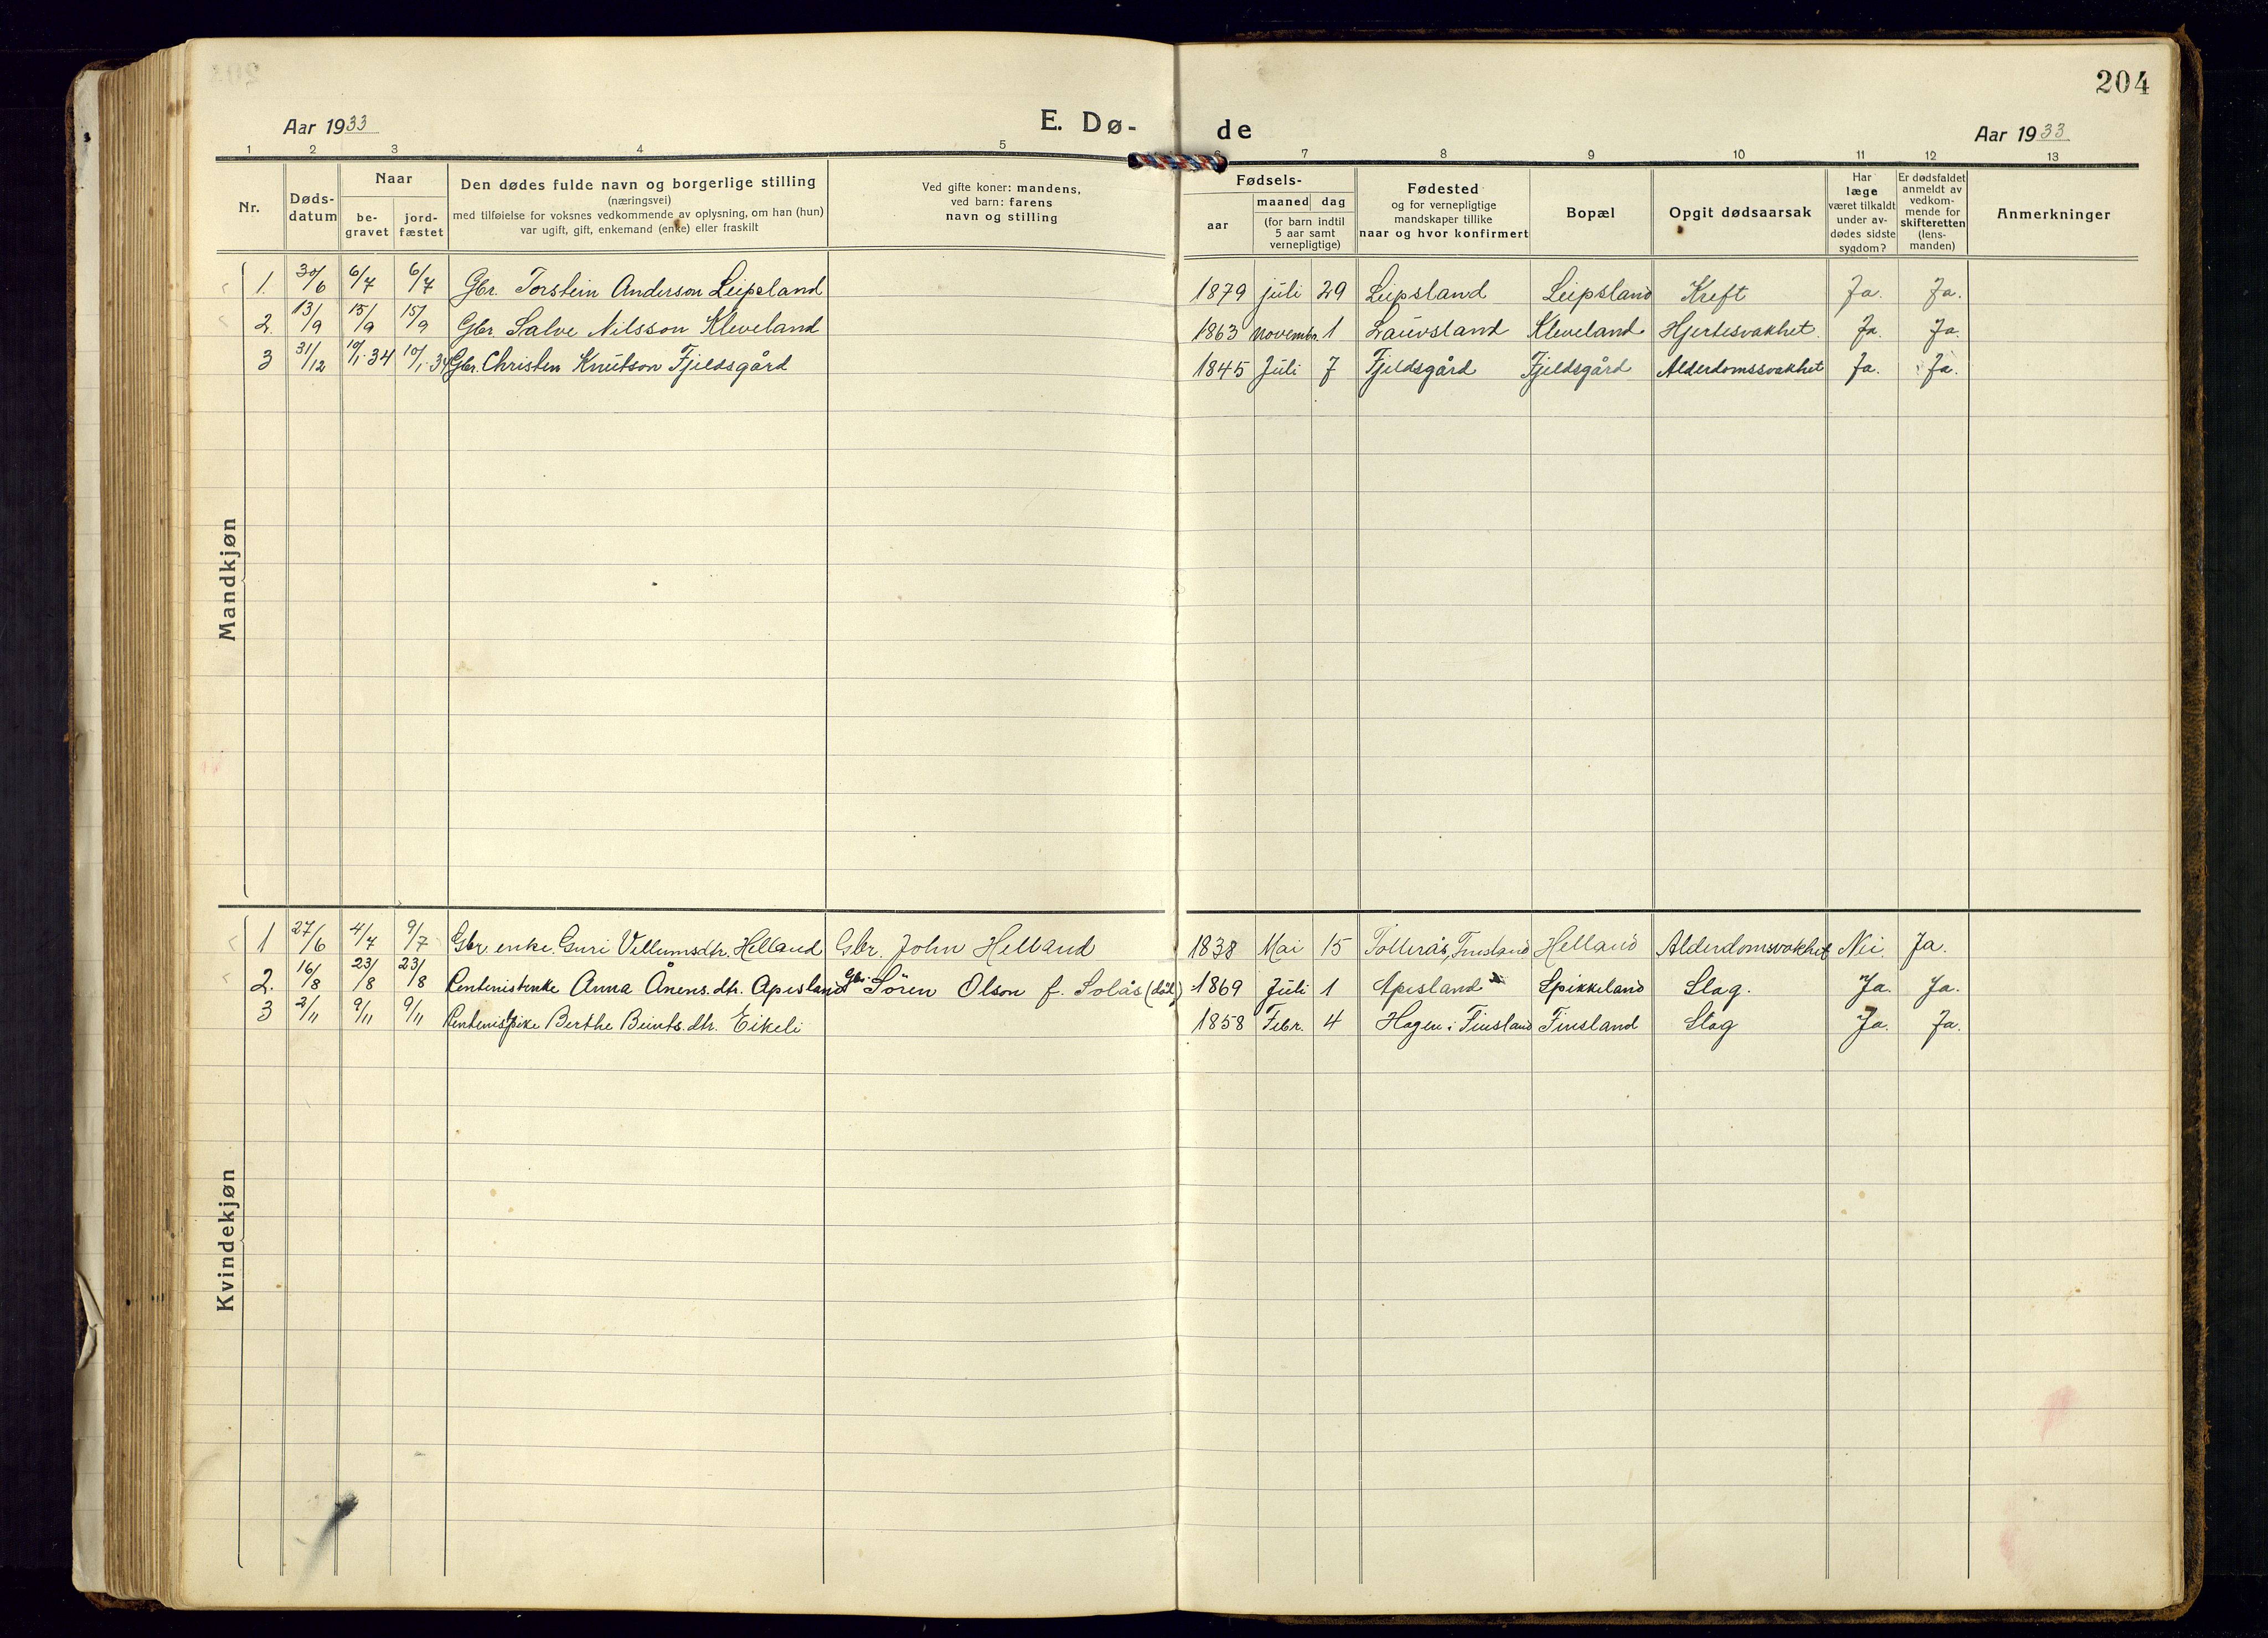 204
Aar 1933
E. Dø-
de
Aar 1933
1 2 3 4 5 7 8 9 10 11 12 13
Nr.
Døds-
datum
Naar
be-
gravet
jord-
fæstet
Den dødes fulde navn og borgerlige stilling
(næringsvei)
med tilføielse for voksnes vedkommende av oplysning, om han (hun)
var ugift, gift, enkemand (enke) eller fraskilt
Ved gifte koner: mandens,
ved barn: farens
navn og stilling
Fødsels-
aar
maaned dag
(for barn indtil
5 aar samt
vernepligtige)
Fødested
og for vernepligtige
mandskaper tillike
naar og hvor konfirmert
Bopæl
Opgit dødsaarsak
Har
læge
været tilkaldt
under av-
dødes sidste
sygdom?
Er dødsfaldet
anmeldt av
vedkom-
mende for
skifteretten
(lens-
manden)
Anmerkninger
Mandkjøn
1. 30/6 6/7 6/7 Gbr. Torstein Anderson Leipsland 1879 juli 29 Leipsland Leipsland Kreft Ja. Ja.
2. 13/9 15/9 15/9 Gbr. Salve Nilsson Kleveland 1863 Novembr. 1 Lauvsland Kleveland Hjertesvakhet. Ja. Ja.
3 31/12 10/1-34 10/1-34 Gbr. Christen Knutson Fjeldsgård 1845 Juli 7 Fjeldsgård Fjeldsgård Alderdomssvakhet Ja. Ja.
Kvindekjøn
1 27/6 4/7 9/7 Gbr. enke. Guri Villumsdtr. Helland Gbr. John Helland 1838 Mai 15 Tolleräs, Finsland Helland Alderdomsvakhet Nei. Ja.
2. 16/8 23/8 23/8 Rentenistenke Anna Ånens. dtr. Apesland Gbr. Sören Olson f. Solås (död) 1869 Juli 1 Apesland Spikkeland Slag. Ja. Ja.
3 2/11 9/11 9/11 Rentenistpike Berthe Beints. dtr. Eikeli 1858 Febr. 4 Hagen i Finsland Finsland Slag Ja. Ja.